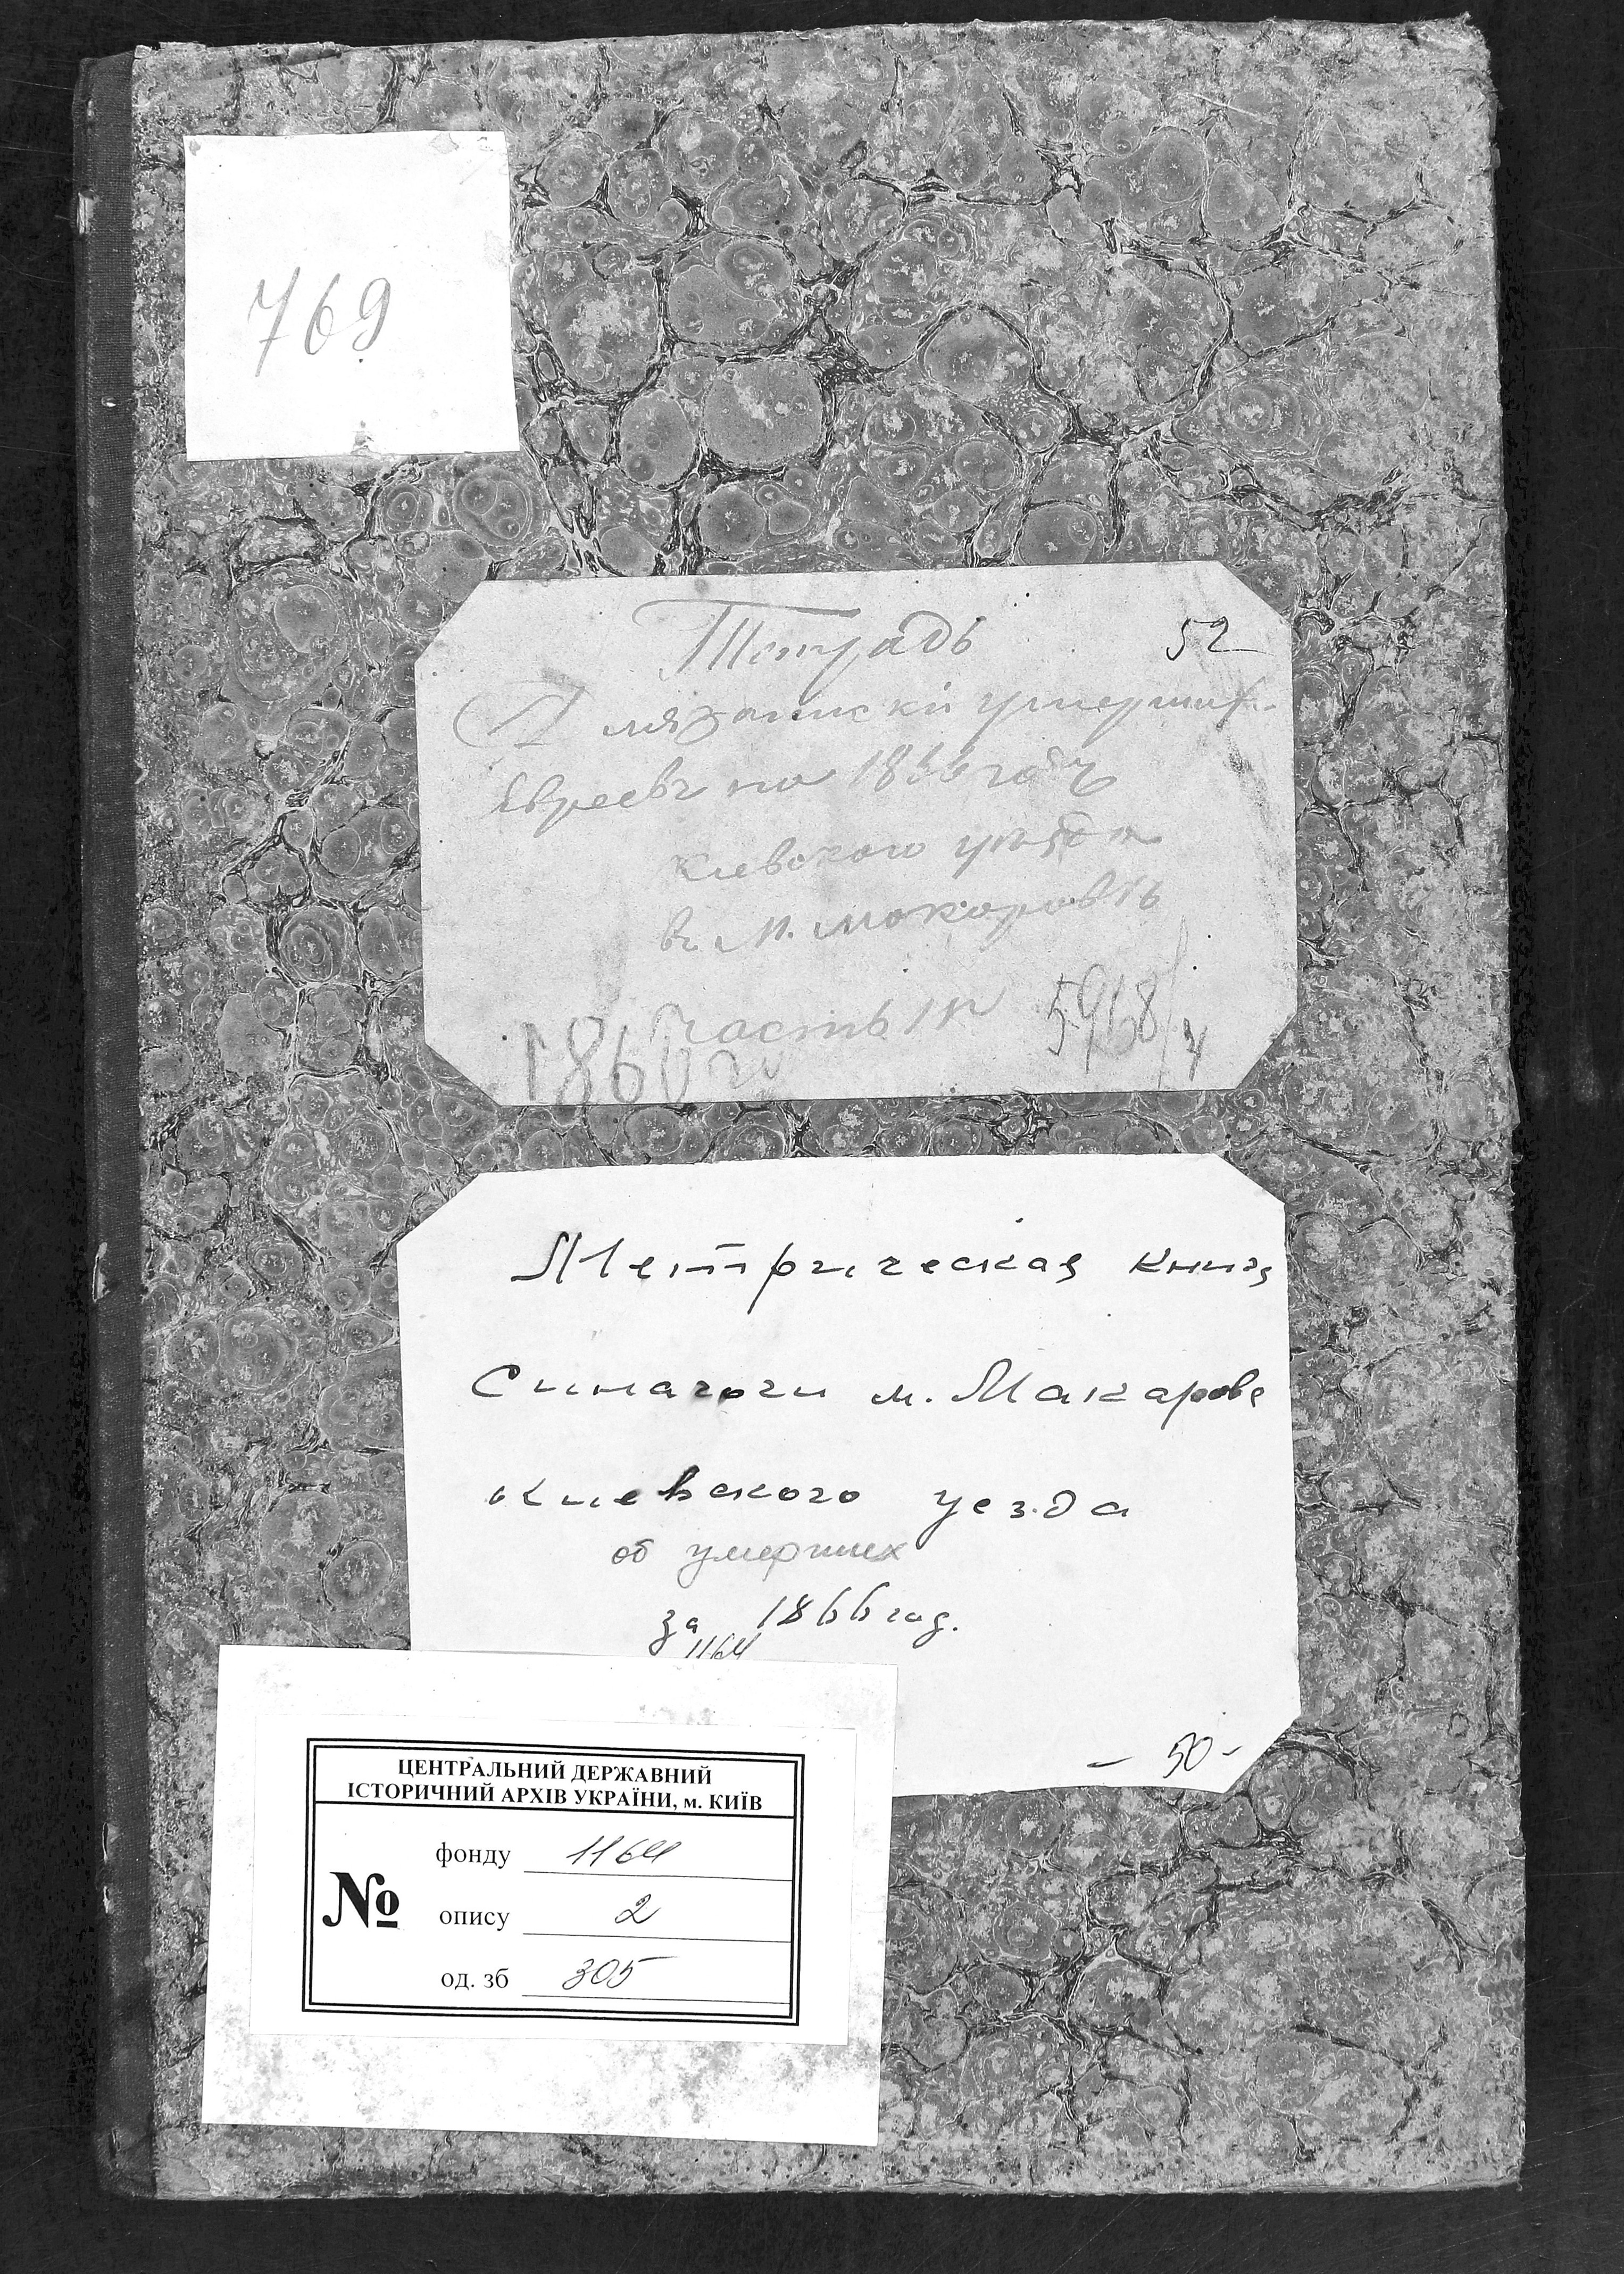 769
Тетрадь 52
Для записки умерших
Евреевъ на 1866 годъ
Киевского уезда
въ м. Макаровѣ
Часть III
1860 г. 5968/4
Метрическая книга
Синагоги м. Макарова
Киевского уезда
об умерших
за 1866 год.
1164
- 50 -
ЦЕНТРАЛЬНИЙ ДЕРЖАВНИЙ
ІСТОРИЧНИЙ АРХІВ УКРАЇНИ, м. КИЇВ
фонду 1164
№ опису 2
од. зб 305